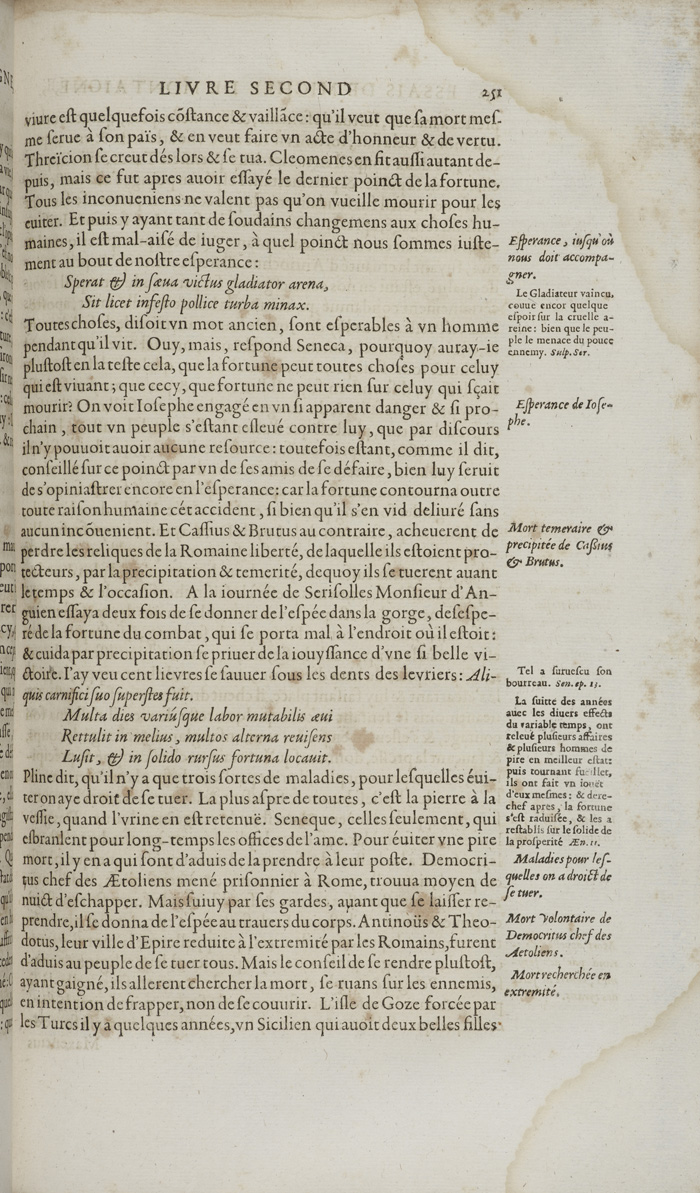 LIVRE SECOND 251
viure eſt quelquefois cõſtance & vaillãce: qu'il veut que ſa mort meſ-
me ſerue à ſon païs, & en veut faire vn acte d'honneur & de vertu.
Threïcion ſe creut dés lors & ſe tua. Cleomenes en fit auſſi autant de-
puis, mais ce fut apres auoir eſſayé le dernier poinct de la fortune.
Tous les inconueniens ne valent pas qu'on vueille mourir pour les
euiter. Et puis y ayant tant de ſoudains changemens aux choſes hu-
maines, il eſt mal-aiſé de iuger, à quel poinct nous ſommes iuſte-
ment au bout de noſtre eſperance:
Sperat & in ſæua victus gladiator arena,
Sit licet infeſto pollice turba minax.
Toutes choſes, diſoit vn mot ancien, ſont eſperables à vn homme
pendant qu'il vit. Ouy, mais, reſpond Seneca, pourquoy auray-ie
pluſtoſt en la teſte cela, que la fortune peut toutes choſes pour celuy
qui eſt viuant; que cecy, que fortune ne peut rien ſur celuy qui ſçait
mourir? On voit Ioſephe engagé en vn ſi apparent danger & ſi pro-
chain, tout vn peuple s'eſtant eſleué contre luy, que par diſcours
il n'y pouuoit auoir aucune reſource: toutefois eſtant, comme il dit,
conſeillé ſur ce poinct par vn de ſes amis de ſe défaire, bien luy ſeruit
de s'opiniaſtrer encore en l'eſperance: car la fortune contourna outre
toute raiſon humaine cét accident, ſi bien qu'il s'en vid deliuré ſans
aucun incõuenient. Et Caſſius & Brutus au contraire, acheuerent de
perdre les reliques de la Romaine liberté, de laquelle ils eſtoient pro-
tecteurs, par la precipitation & temerité, dequoy ils ſe tuerent auant
le temps & l'occaſion. A la iournée de Seriſolles Monſieur d'An-
guien eſſaya deux fois de ſe donner de l'eſpée dans la gorge, deſeſpe-
ré de la fortune du combat, qui ſe porta mal à l'endroit où il eſtoit:
& cuida par precipitation ſe priuer de la iouyſſance d'vne ſi belle vi-
ctoire. I'ay veu cent lievres ſe ſauuer ſous les dents des levriers: Ali-
quis carnifici ſuo ſuperſtes fuit.
Multa dies variúſque labor mutabilis æui
Rettulit in melius, multos alterna reuiſens
Luſit, & in ſolido rurſus fortuna locauit.
Pline dit, qu'il n'y a que trois ſortes de maladies, pour leſquelles éui-
ter on aye droit de ſe tuer. La plus aſpre de toutes, c'eſt la pierre à la
veſſie, quand l'vrine en eſt retenuë. Seneque, celles ſeulement, qui
eſbranlent pour long-temps les offices de l'ame. Pour éuiter vne pire
mort, il y en a qui ſont d'aduis de la prendre à leur poſte. Democri-
tus chef des Ætoliens mené priſonnier à Rome, trouua moyen de
nuict d'eſchapper. Mais ſuiuy par ſes gardes, auant que ſe laiſſer re-
prendre, il ſe donna de l'eſpée au trauers du corps. Antinoüs & Theo-
dotus, leur ville d'Epire reduite à l'extremité par les Romains, furent
d'aduis au peuple de ſe tuer tous. Mais le conſeil de ſe rendre pluſtoſt,
ayant gaigné, ils allerent chercher la mort, ſe ruans ſur les ennemis,
en intention de frapper, non de ſe couurir. L'iſle de Goze forcée par
les Turcs il y a quelques années, vn Sicilien qui auoit deux belles filles
Eſperance, iuſqu'où
nous doit accompa-
gner.
Le Gladiateur vaincu,
couue encor quelque
eſpoir ſur la cruelle a-
reine: bien que le peu-
ple le menace du pouce
ennemy. Sulp. Ser.
Eſperance de Ioſe-
phe.
Mort temeraire &
precipitée de Caſſius
& Brutus.
Tel a ſurueſcu ſon
bourreau. Sen. ep. 13.
La ſuitte des années
auec les diuers effects
du variable temps, ont
releué pluſieurs affaires
& pluſieurs hommes de
pire en meilleur eſtat:
puis tournant fueillet,
ils ont fait vn iouët
d'eux meſmes: & dere-
chef apres, la fortune
s'eſt rauiſée, & les a
reſtablis ſur le ſolide de
la proſperité Æn. 11.
Maladies pour leſ-
quelles on a droict de
ſe tuer.
Mort volontaire de
Democritus chef des
Aetoliens.
Mort recherchée en
extremité.